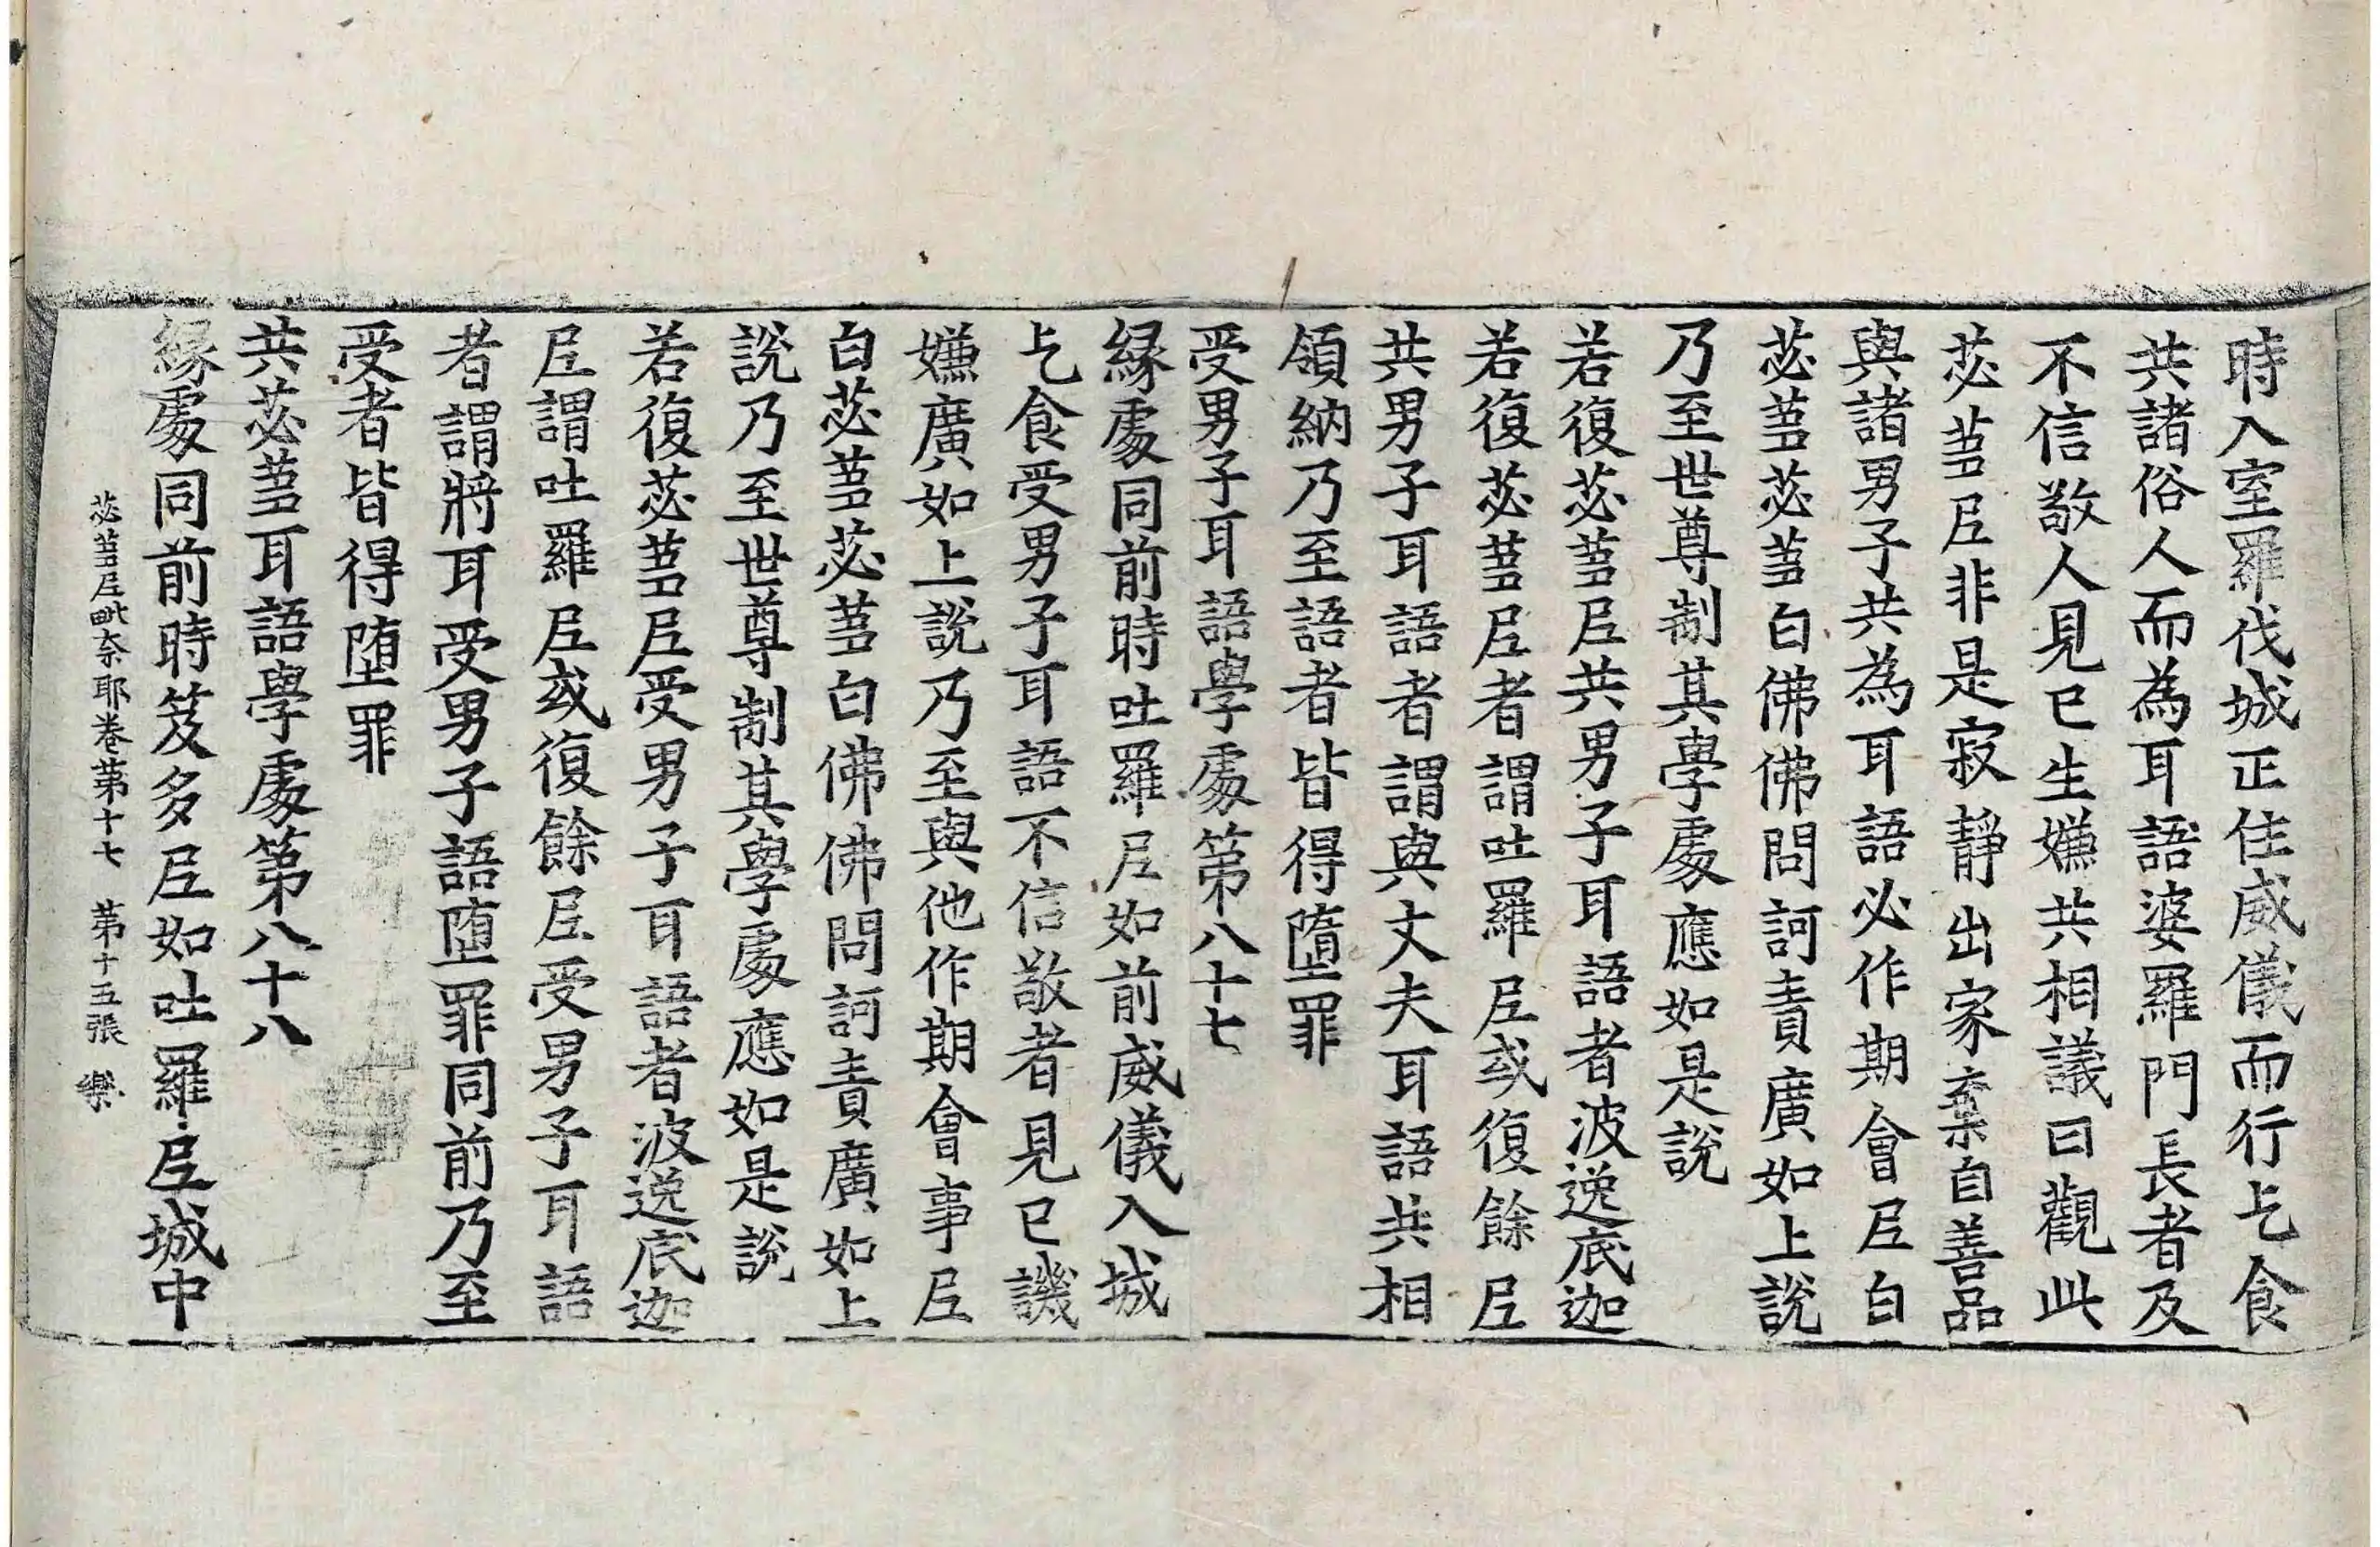 時入室羅伐城正住威儀而行乞食
共諸俗人而為耳語婆羅門長者及
不信敬人見已生嫌共相議曰觀此
苾蒭尼非是寂靜出家棄自善品
與諸男子共為耳語必作期會尼白
苾蒭苾蒭白佛佛問訶責廣如上說
乃至世尊制其學處應如是說
若復苾蒭尼共男子耳語者波逸底迦
若復苾蒭尼者謂吐羅尼或復餘尼
共男子耳語者謂與丈夫耳語共相
領納乃至語者皆得墮罪
受男子耳語學處第八十七
緣處同前時吐羅尼如前威儀入城
乞食受男子耳語不信敬者見已譏
嫌廣如上說乃至與他作期會事尼
白苾蒭苾蒭白佛佛問訶責廣如上
說乃至世尊制其學處應如是說
若復苾蒭尼受男子耳語者波逸底迦
尼謂吐羅尼或復餘尼受男子耳語
者謂將耳受男子語墮罪同前乃至
受者皆得墮罪
共苾蒭耳語學處第八十八
緣處同前時笈多尼如吐羅尼城中
苾蒭尼毗奈耶卷第十七 第十五張 樂